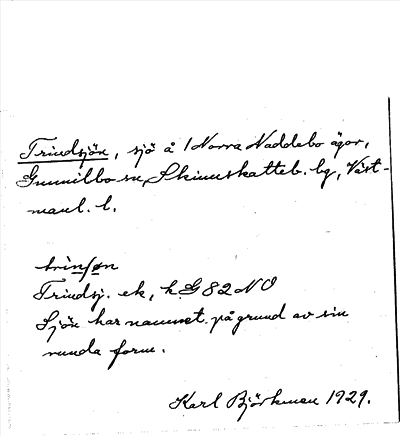 Trindsjön, sjö å /Norra Naddebo ägor,
Gunnilbo sn, Skinnskatteb. bg, Väst-
manl. l.
trìnʃøn
Trindsj. ek, k. G 82 NO
Sjön har namnet på grund av sin
runda form.
Karl Björkman 1929.